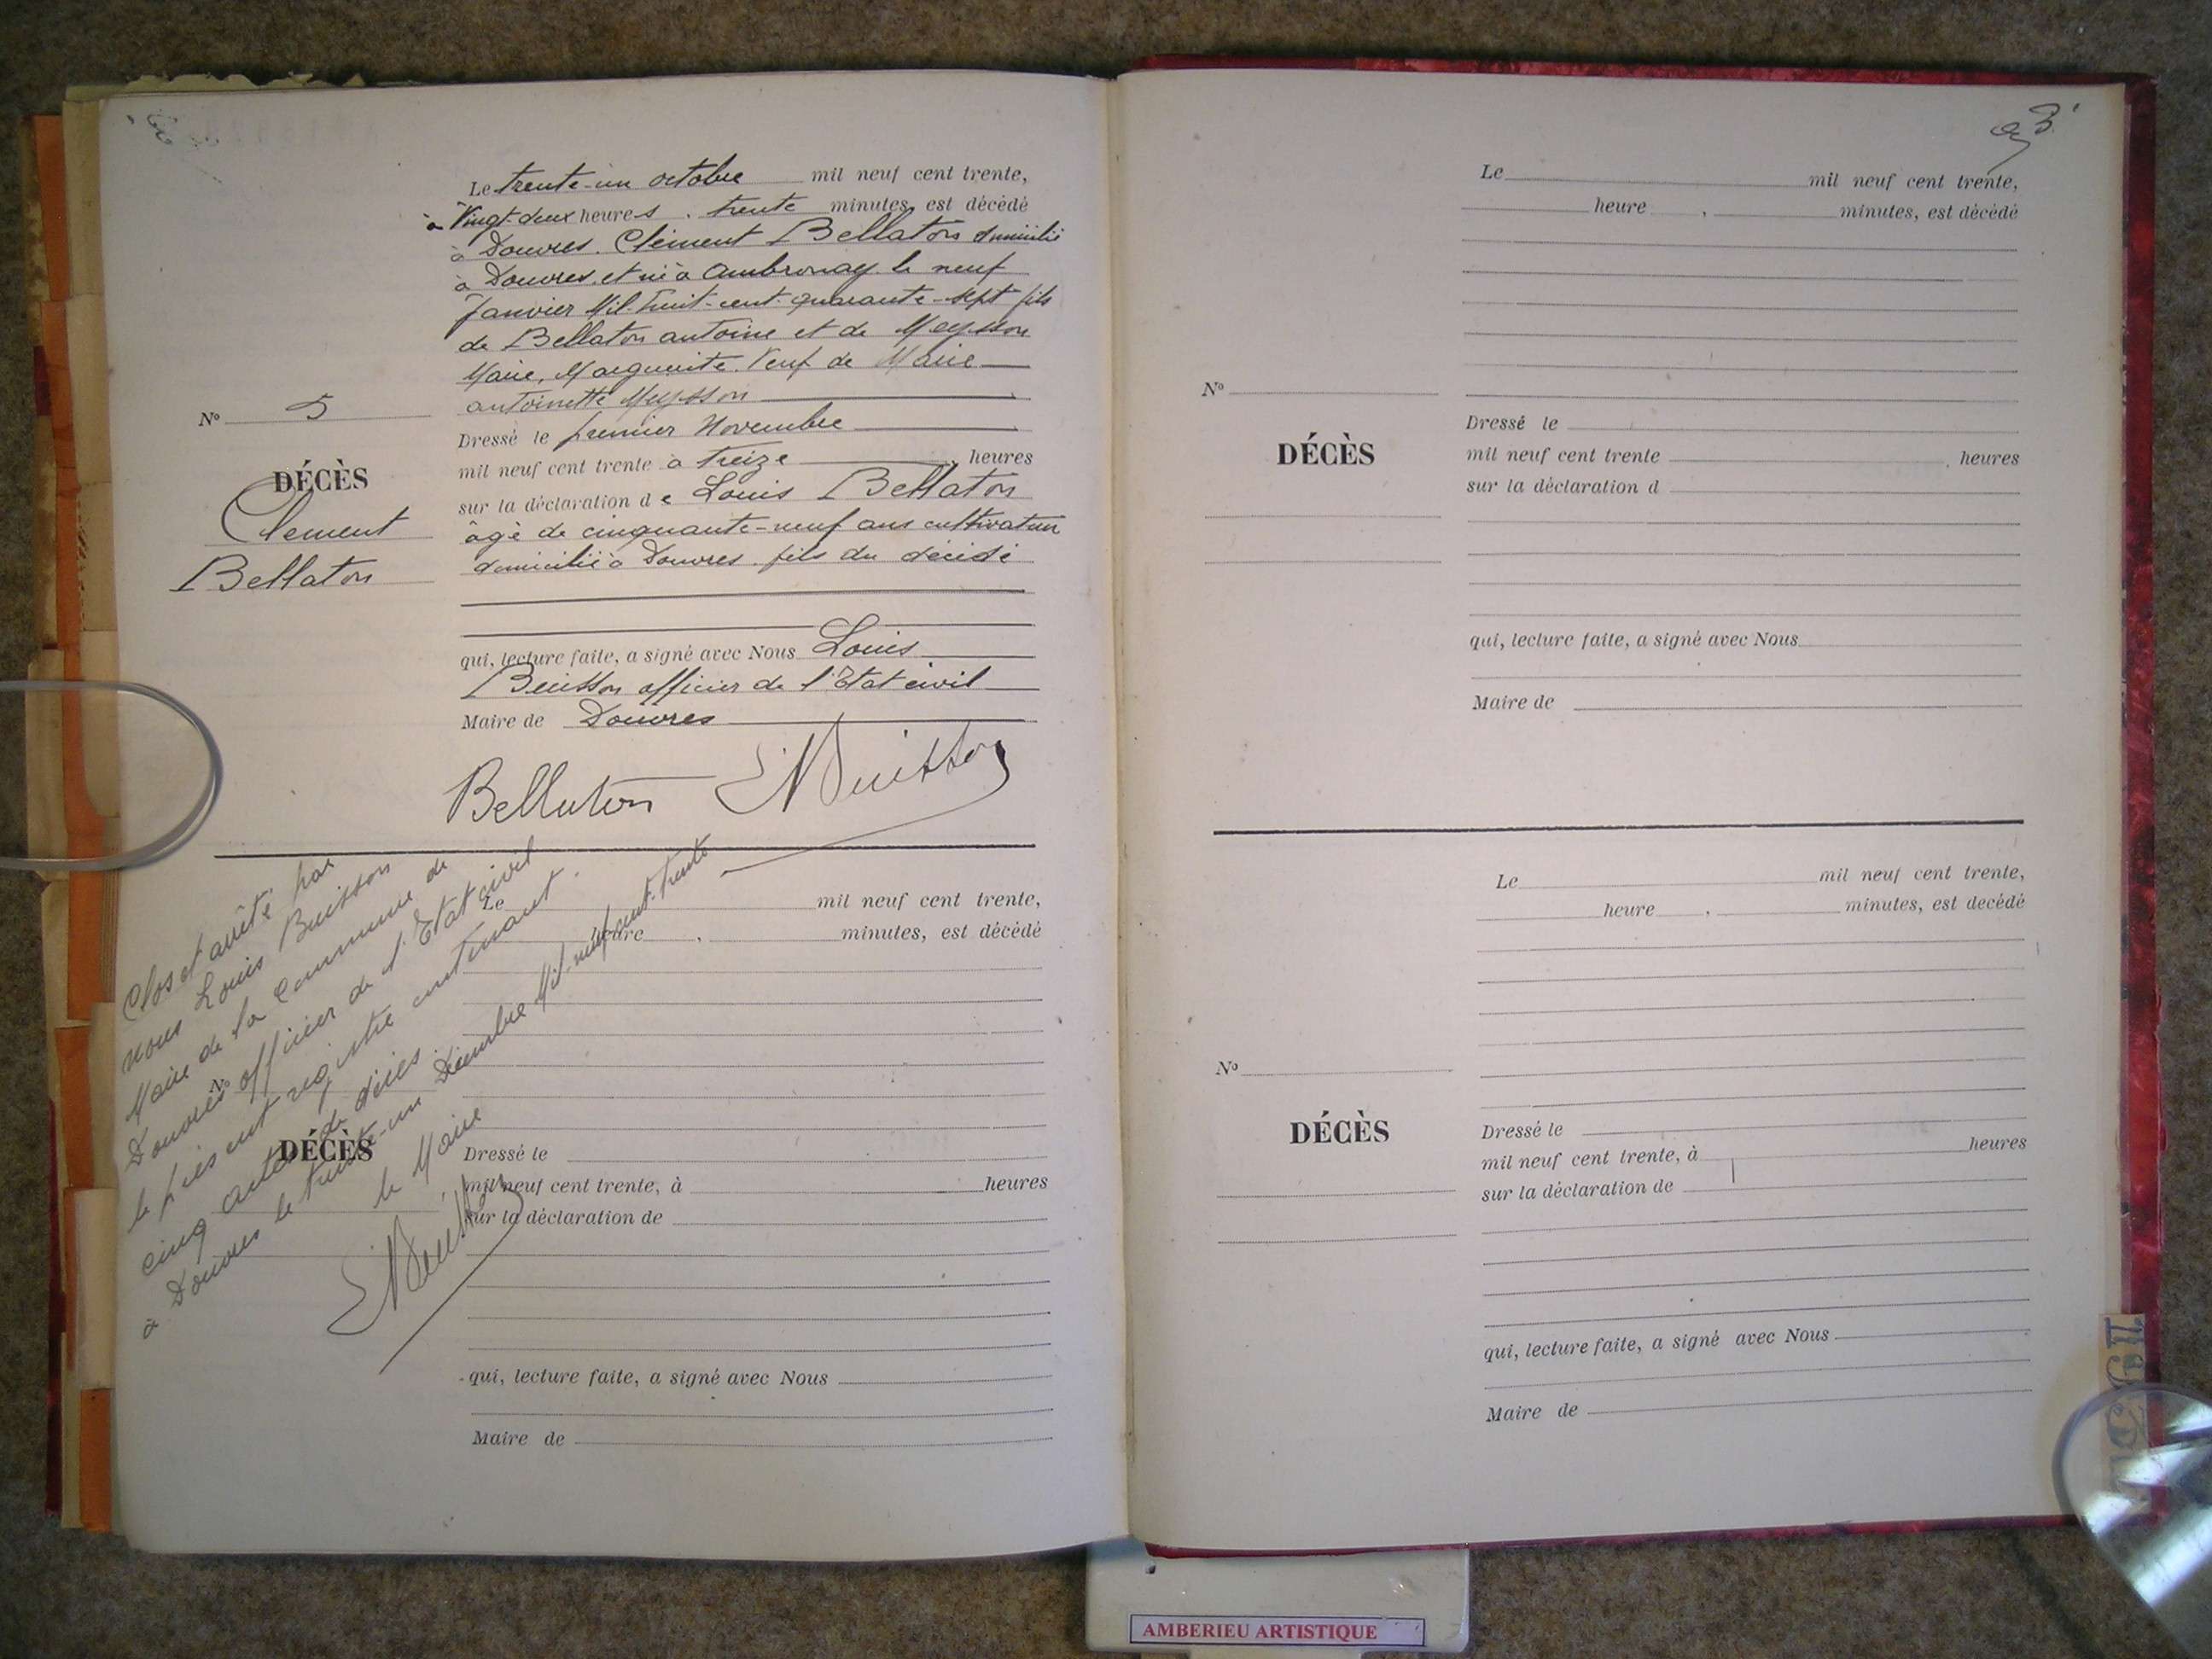 Le trente-un octobre mil neuf cent trente,
à Vingt-deux heures, trente minutes, est décédé
à Douvres. Clément Bellaton domicilié
à Douvres et né à Ambronay le neuf
Janvier Mil-huit-cent-quarante-sept fils
de Bellaton antoine et de Meysson
Marie, Marguerite. Veuf de Marie
antoinette Meysson
Nº 5
DÉCÈS
Clement
Bellaton
Dressé le premier Novembre
mil neuf cent trente à treize heures
sur la déclaration de Louis Bellaton
âgé de cinquante-neuf ans cultivateur
domicilié à Douvres. fils du décédé
qui, lecture faite, a signé avec Nous Louis
Buisson officier de l'Etat civil
Maire de Douvres
Bellaton Buisson
Clos et arrêté par
nous Louis Buisson
Maire de la Commune de
Douvres officier de l'Etat civil
le présent registre contenant
cinq actes de décès.
à Douvres le trente-un Décembre Mil-neuf-cent-trente
le Maire
Buisson
Le mil neuf cent trente,
heure , minutes, est décédé
Nº
DÉCÈS
Dressé le
mil neuf cent trente, à heures
sur la déclaration de
qui, lecture faite, a signé avec Nous
Maire de
3
Le mil neuf cent trente,
heure , minutes, est décédé
Nº
DÉCÈS
Dressé le
mil neuf cent trente , heures
sur la déclaration d
qui, lecture faite, a signé avec Nous
Maire de
Le mil neuf cent trente,
heure , minutes, est decédé
Nº
DÉCÈS
Dressé le
mil neuf cent trente, à heures
sur la déclaration de
qui, lecture faite, a signé avec Nous
Maire de
AMBERIEU ARTISTIQUE